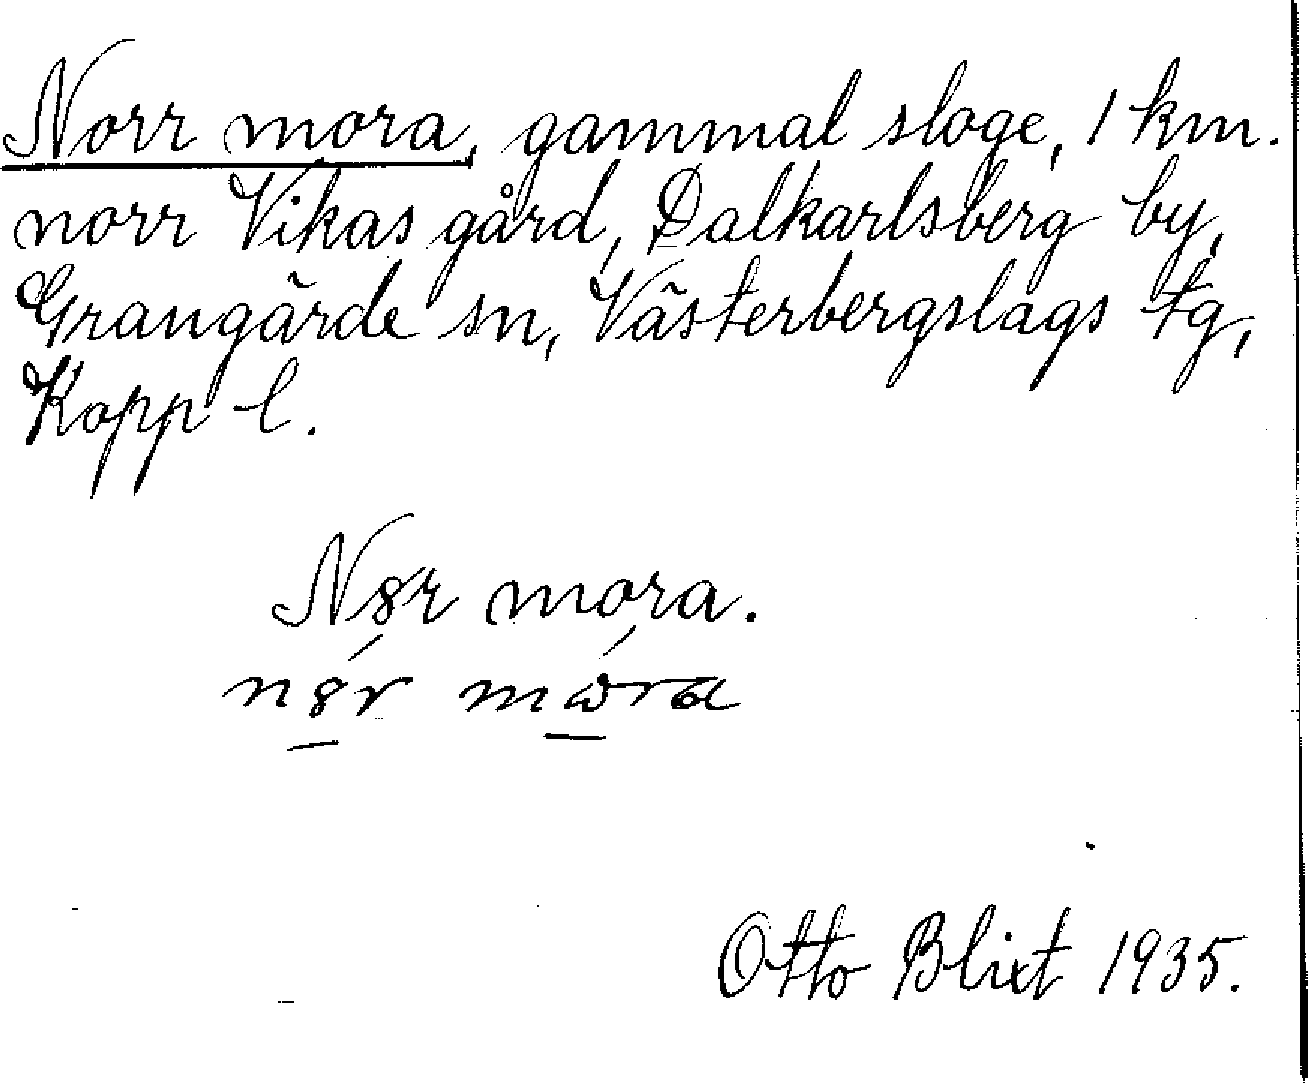 Norr mora, gammal sloge, 1 km.
norr Vikas gård, Dalkarlsberg by,
Grangärde sn, Västerbergslags tg,
Kopp l.
N8r mora.
n8r mωra
Otto Blixt 1935.